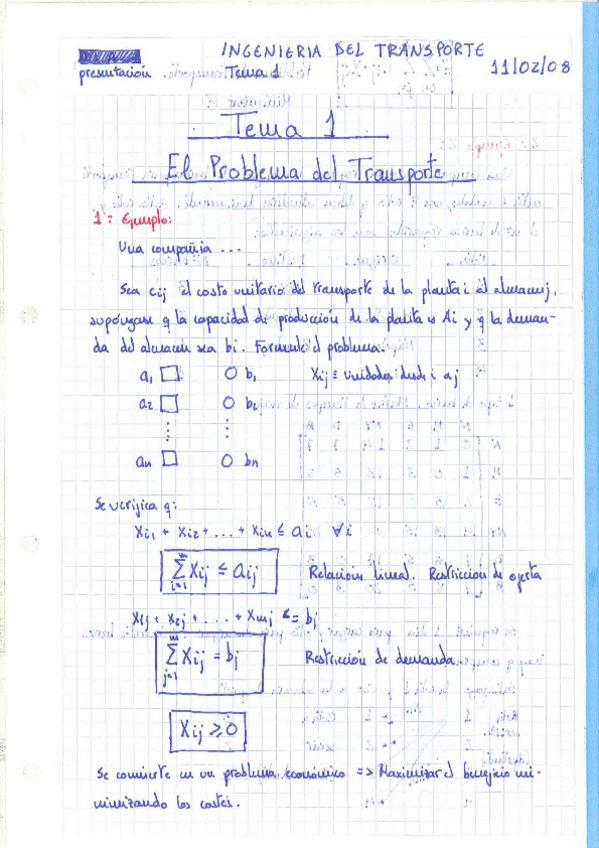 INGENIERIA DEL TRANSPORTE
presentación. Tema 1
11/02/08
Tema 1
El Problema del Transporte
1= Ejemplo:
Una compañia ...
Sea cij el costo unitario del transporte de la planta i al almacen j,
supóngase q la capacidad de producción de la planta es Ai y q la deman-
da del almacen sea bi. Formule el problema.
a1 □ ○ b1 Xij ≡ unidades desde i a j
a2 □ ○ b2
⋮ ⋮
an □ ○ bn
Se verifica q:
Xi1 + Xi2 + ... + Xin ≤ ai ∀i
m Σ i=1 Xij ≤ aij Relación lineal. Restricción de oferta
X1j + X2j + ... + Xmj = bj
m Σ j=1 Xij = bj Restricción de demanda
Xij ≥ 0
Se convierte en un problema económico => Maximizar el beneficio mi-
nimizando los costes.